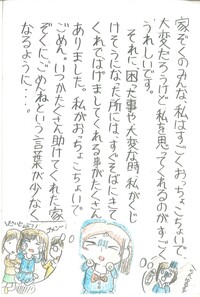 家ぞくのみんな、私はすごくおっちょこちょいで
大変だろうけど、私を思ってくれるのがすごく
うれしいです。
それに、困った事や大変な時、私がく
けそうになった所には、すぐそばにきて
くれてはげましてくれる事がたくさん
ありました。私がおっちょこちょいで
ごめん。いつかたくさん助けてくれた家
ぞくにごめんねという言葉が少なく
なるように・・・。